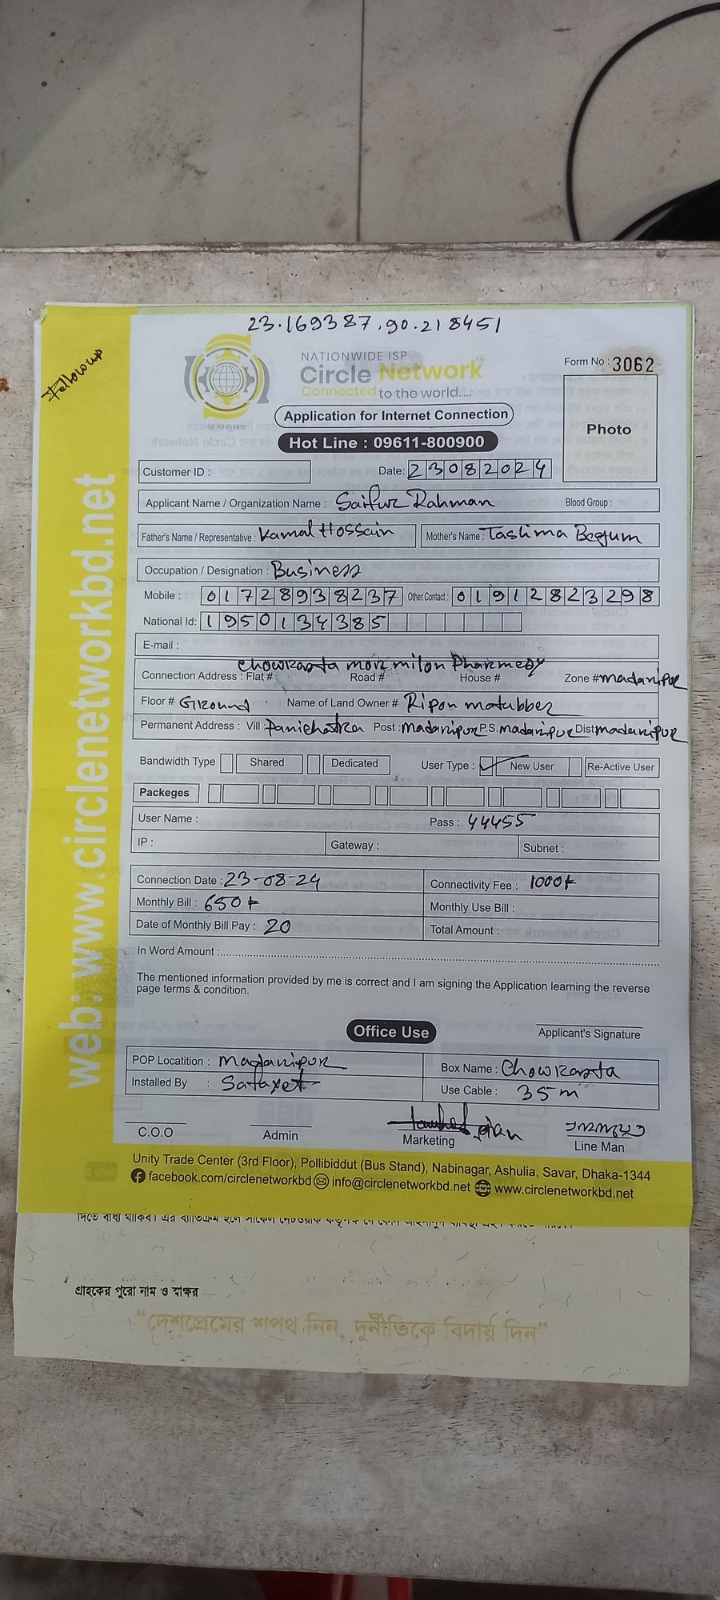 23.169387.90.218451
Followup
NATIONWIDE ISP
Circle Network
Connected to the world.....
Form No : 3062
Application for Internet Connection
Photo
Hot Line : 09611-800900
Customer ID :
Date: 23082024
Applicant Name / Organization Name : Saifur Rahman Blood Group :
Father's Name / Representative : Kamal Hossain Mother's Name : Taslima Begum
Occupation / Designation : Business
Mobile : 01728938237 Other Contact : 01912823298
National Id: 1950134385
E-mail :
Chowrasta morz milon Pharmecy
Connection Address : Flat # Road # House # Zone # madaripur
Floor # Ground Name of Land Owner # Ripon matubber
Permanent Address : Vill Panichatra Post : madaripur P.S. madaripur Dist madaripur
Bandwidth Type Shared Dedicated User Type : New User Re-Active User
Packeges
User Name : Pass : 44455
IP : Gateway : Subnet :
Connection Date : 23-08-24 Connectivity Fee : 1000+
Monthly Bill : 650+ Monthly Use Bill :
Date of Monthly Bill Pay : 20 Total Amount :
In Word Amount :
The mentioned information provided by me is correct and I am signing the Application learning the reverse
page terms & condition.
Office Use
Applicant's Signature
POP Locatition : madaripur Box Name : Chowrasta
Installed By : Use Cable : 35m
C.O.O Admin Marketing Line Man
Unity Trade Center (3rd Floor), Pollibiddut (Bus Stand), Nabinagar, Ashulia, Savar, Dhaka-1344
facebook.com/circlenetworkbd info@circlenetworkbd.net www.circlenetworkbd.net
web: www.circlenetworkbd.net
গ্রাহকের পুরো নাম ও স্বাক্ষর
"দেশপ্রেমের শপথ নিন, দুর্নীতিকে বিদায় দিন"